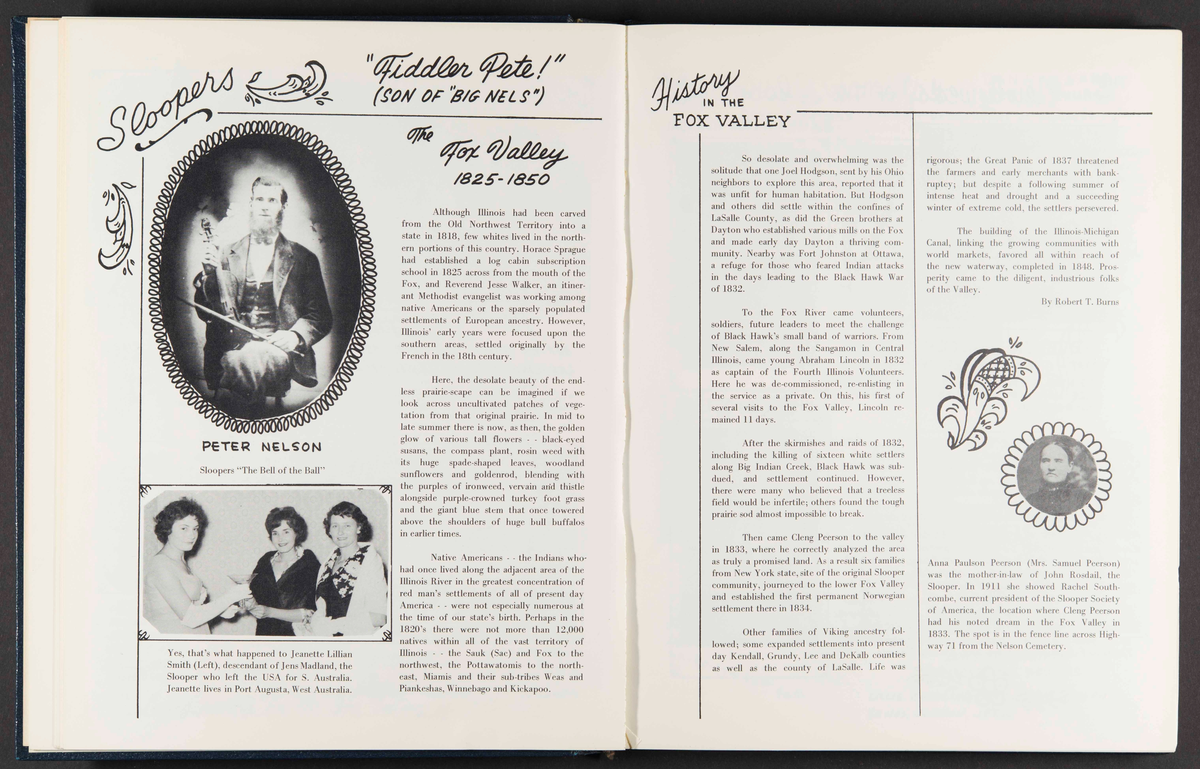 Sloopers
"Fiddler Pete!"
(SON OF "BIG NELS")
PETER NELSON
Sloopers "The Bell of the Ball"
Yes, that's what happened to Jeanette Lillian
Smith (Left), descendant of Jens Madland, the
Slooper who left the USA for S. Australia.
Jeanette lives in Port Augusta, West Australia.
The
Fox Valley
1825-1850
Although Illinois had been carved
from the Old Northwest Territory into a
state in 1818, few whites lived in the north-
ern portions of this country. Horace Sprague
had established a log cabin subscription
school in 1825 across from the mouth of the
Fox, and Reverend Jesse Walker, an itiner-
ant Methodist evangelist was working among
native Americans or the sparsely populated
settlements of European ancestry. However,
Illinois' early years were focused upon the
southern areas, settled originally by the
French in the 18th century.
Here, the desolate beauty of the end-
less prairie-scape can be imagined if we
look across uncultivated patches of vege-
tation from that original prairie. In mid to
late summer there is now, as then, the golden
glow of various tall flowers - - black-eyed
susans, the compass plant, rosin weed with
its huge spade-shaped leaves, woodland
sunflowers and goldenrod, blending with
the purples of ironweed, vervain and thistle
alongside purple-crowned turkey foot grass
and the giant blue stem that once towered
above the shoulders of huge bull buffalos
in earlier times.
Native Americans - - the Indians who
had once lived along the adjacent area of the
Illinois River in the greatest concentration of
red man's settlements of all of present day
America - - were not especially numerous at
the time of our state's birth. Perhaps in the
1820's there were not more than 12,000
natives within all of the vast territory of
Illinois - - the Sauk (Sac) and Fox to the
northwest, the Pottawatomis to the north-
east, Miamis and their sub-tribes Weas and
Piankeshas, Winnebago and Kickapoo.
History
IN THE
FOX VALLEY
So desolate and overwhelming was the
solitude that one Joel Hodgson, sent by his Ohio
neighbors to explore this area, reported that it
was unfit for human habitation. But Hodgson
and others did settle within the confines of
LaSalle County, as did the Green brothers at
Dayton who established various mills on the Fox
and made early day Dayton a thriving com-
munity. Nearby was Fort Johnston at Ottawa,
a refuge for those who feared Indian attacks
in the days leading to the Black Hawk War
of 1832.
To the Fox River came volunteers,
soldiers, future leaders to meet the challenge
of Black Hawk's small band of warriors. From
New Salem, along the Sangamon in Central
Illinois, came young Abraham Lincoln in 1832
as captain of the Fourth Illinois Volunteers.
Here he was de-commissioned, re-enlisting in
the service as a private. On this, his first of
several visits to the Fox Valley, Lincoln re-
mained 11 days.
After the skirmishes and raids of 1832,
including the killing of sixteen white settlers
along Big Indian Creek, Black Hawk was sub-
dued, and settlement continued. However,
there were many who believed that a treeless
field would be infertile; others found the tough
prairie sod almost impossible to break.
Then came Cleng Peerson to the valley
in 1833, where he correctly analyzed the area
as truly a promised land. As a result six families
from New York state, site of the original Slooper
community, journeyed to the lower Fox Valley
and established the first permanent Norwegian
settlement there in 1834.
Other families of Viking ancestry fol-
lowed; some expanded settlements into present
day Kendall, Grundy, Lee and DeKalb counties
as well as the county of LaSalle. Life was
rigorous; the Great Panic of 1837 threatened
the farmers and early merchants with bank-
ruptcy; but despite a following summer of
intense heat and drought and a succeeding
winter of extreme cold, the settlers persevered.
The building of the Illinois-Michigan
Canal, linking the growing communities with
world markets, favored all within reach of
the new waterway, completed in 1848. Pros-
perity came to the diligent, industrious folks
of the Valley.
By Robert T. Burns
Anna Paulson Peerson (Mrs. Samuel Peerson)
was the mother-in-law of John Rosdail, the
Slooper. In 1911 she showed Rachel South-
combe, current president of the Slooper Society
of America, the location where Cleng Peerson
had his noted dream in the Fox Valley in
1833. The spot is in the fence line across High-
way 71 from the Nelson Cemetery.